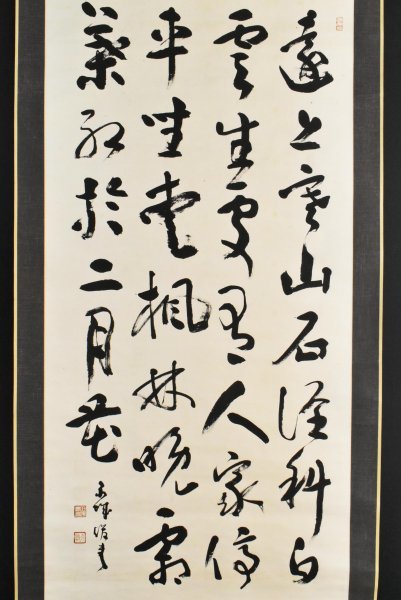 遠上寒山石径斜白
雲生處有人家停
車坐愛楓林晩霜
葉紅於二月花